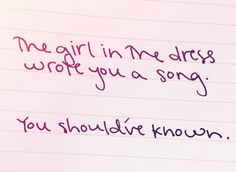 The girl in The dress
wrote you a song.
You should've known.